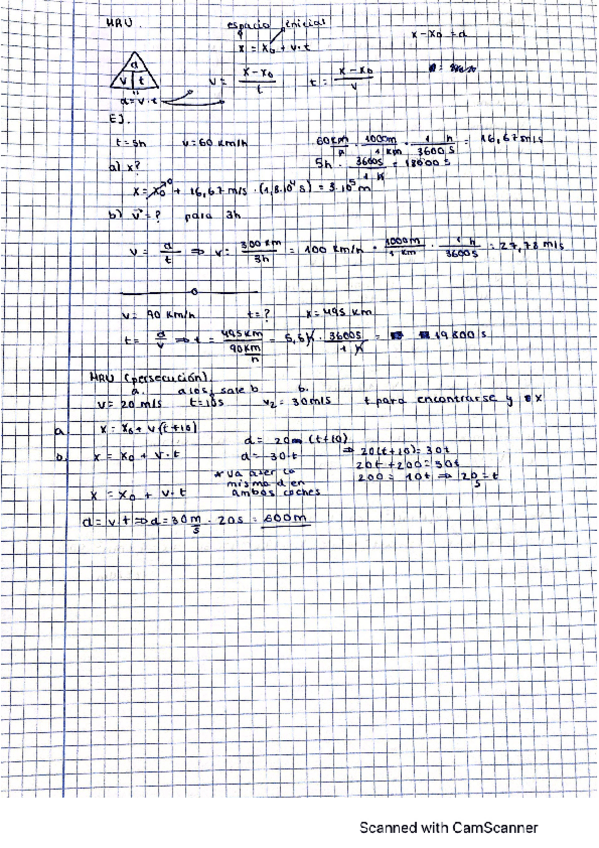 MRU espacio inicial
x = x₀ + v·t x-x₀ = d
d
v t v = x-x₀/t t = x-x₀/v
d = v·t
EJ.
t = 5h v = 60 km/h 60 km/h · 1000m/1 km · 1 h/3600 s = 16,67 m/s
a) x? 5h · 3600s/1 h = 18000 s
x = x₀ + 16,67 m/s · (1,8·10⁴ s) = 3·10⁵ m
b) v = ? para 3h
v = d/t ⇒ v = 300 km/3h = 100 km/h · 1000m/1 km · 1 h/3600s = 27,78 m/s
v = 90 km/h t = ? x = 495 km
t = d/v ⇒ t = 495 km/90 km/h = 5,5 h · 3600s/1 h = 19800 s
MRU (persecución)
a. a 10s, sale b b.
v = 20 m/s t = 10s v₂ = 30 m/s t para encontrarse y x
a. x = x₀ + v(t+10)
d = 20m (t+10) ⇒ 20(t+10) = 30t
b. x = x₀ + v·t d = 30·t 20t + 200 = 30t
* va a ser la 200 = 10t ⇒ 20 s = t
misma d en
x = x₀ + v·t ambos coches
d = v t ⇒ d = 30 m/s · 20s = 600m
Scanned with CamScanner